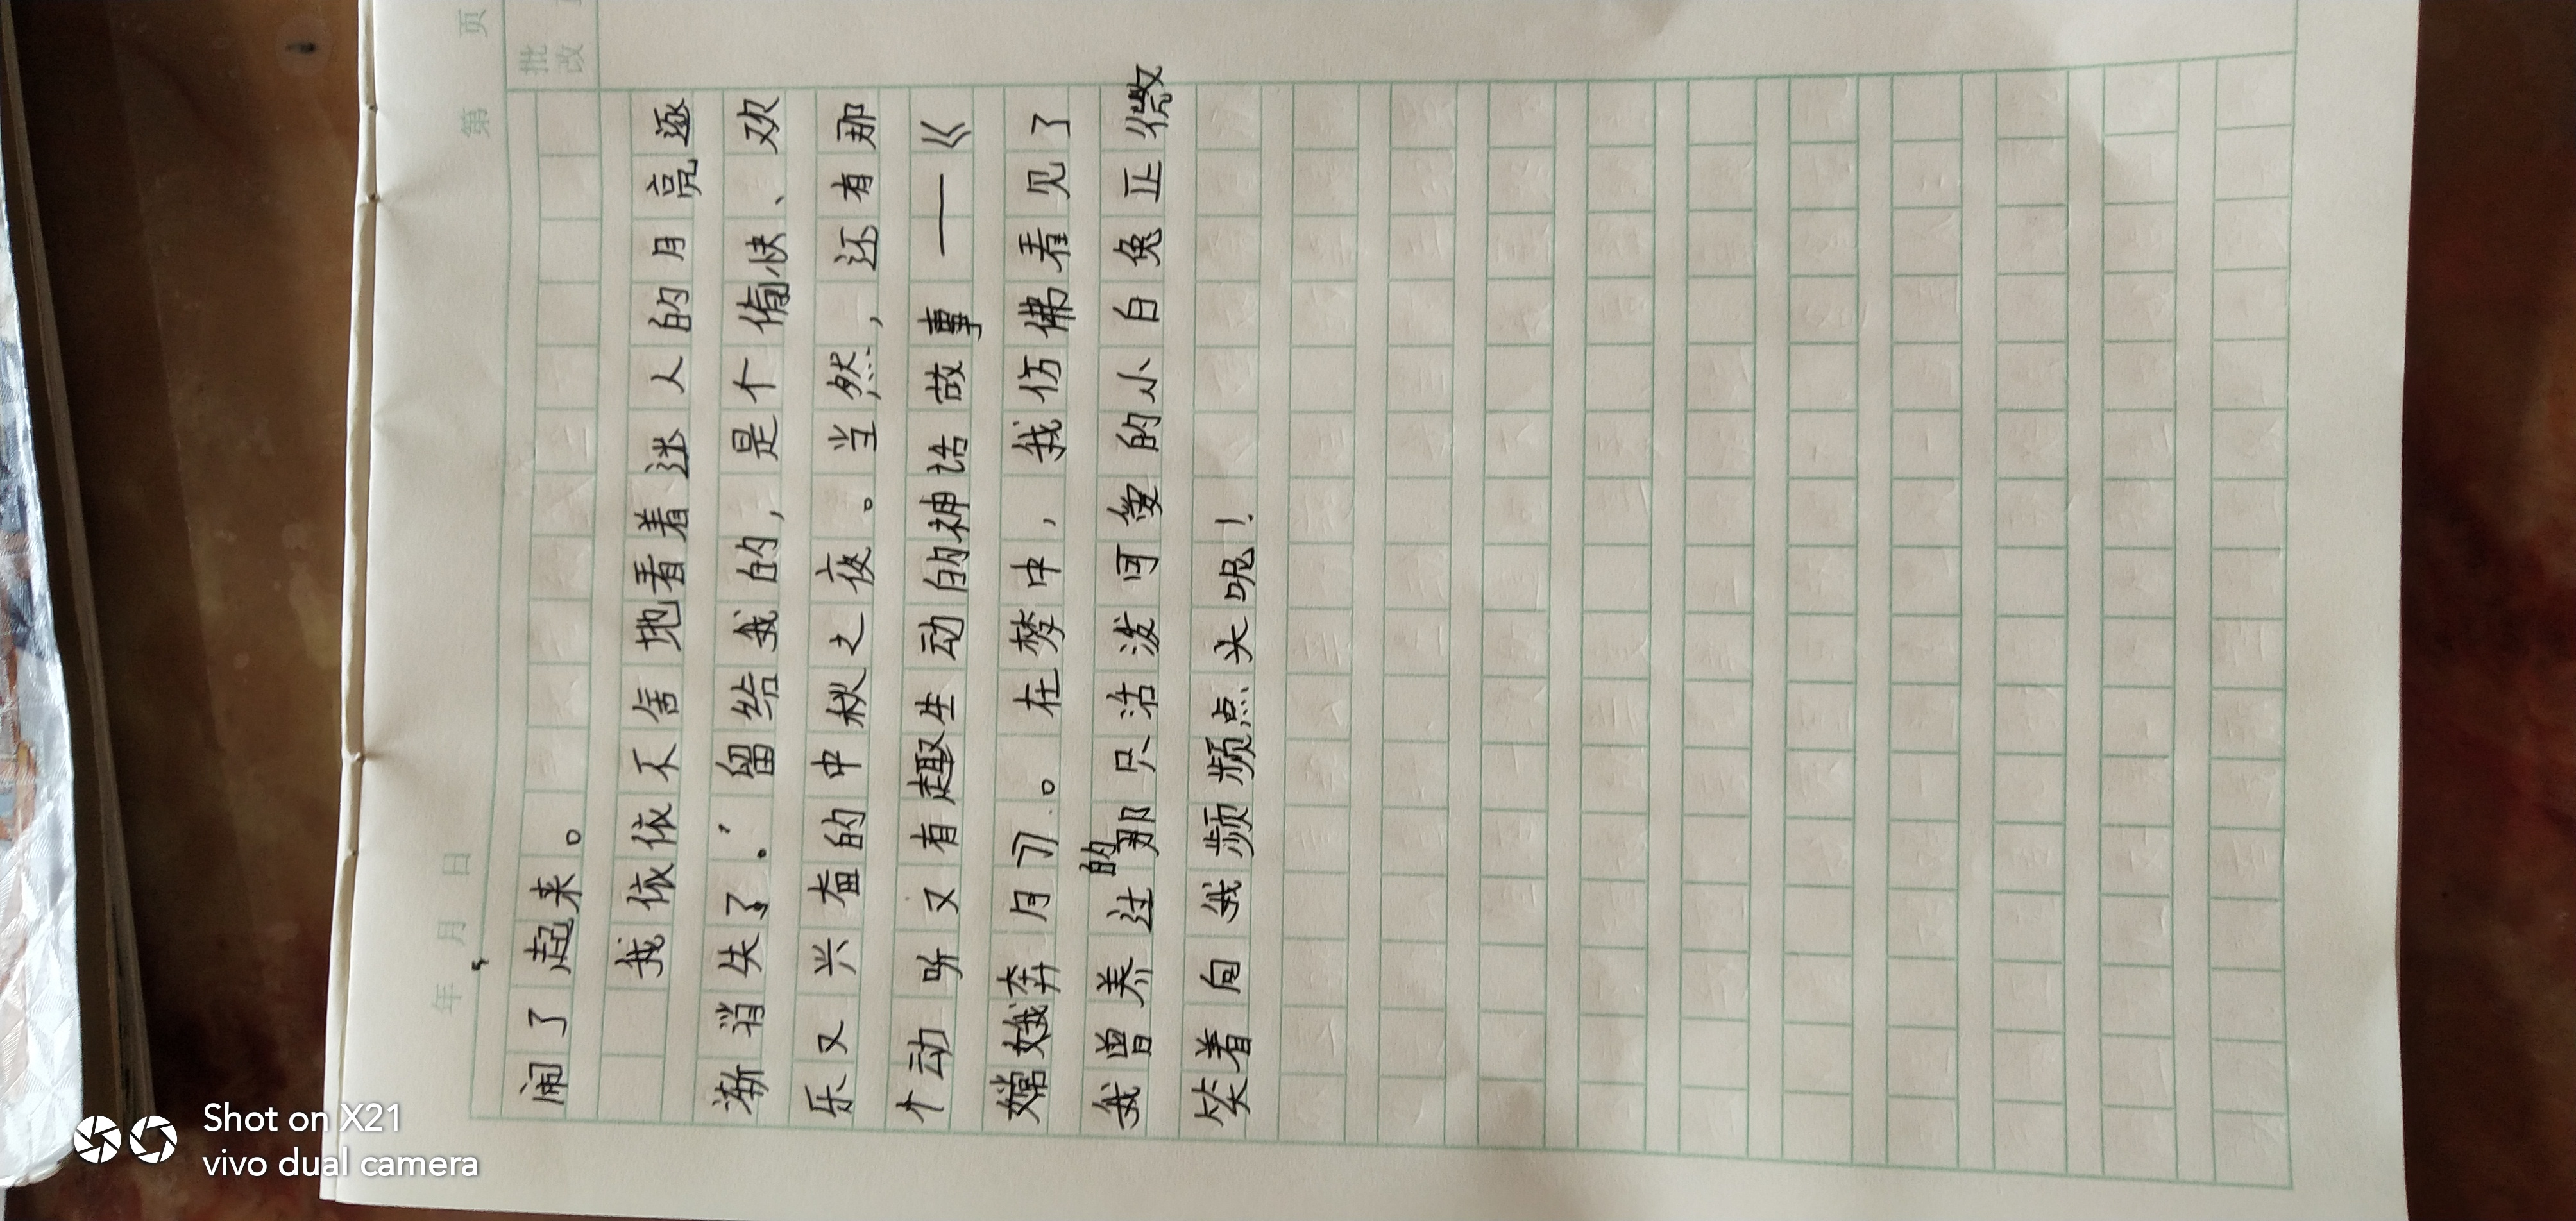 第 页
年 月 日
批改
闹了起来。
我依依不舍地看着迷人的月亮逐
渐消失了。留给我的,是个愉快、欢
乐又兴奋的中秋之夜。当然,还有那
个动听又有趣生动的神话故事——《
嫦娥奔月》。在梦中,我仿佛看见了
我曾养过的那只活泼可爱的小白兔正微
笑着向我频频点头呢!
Shot on X21
vivo dual camera